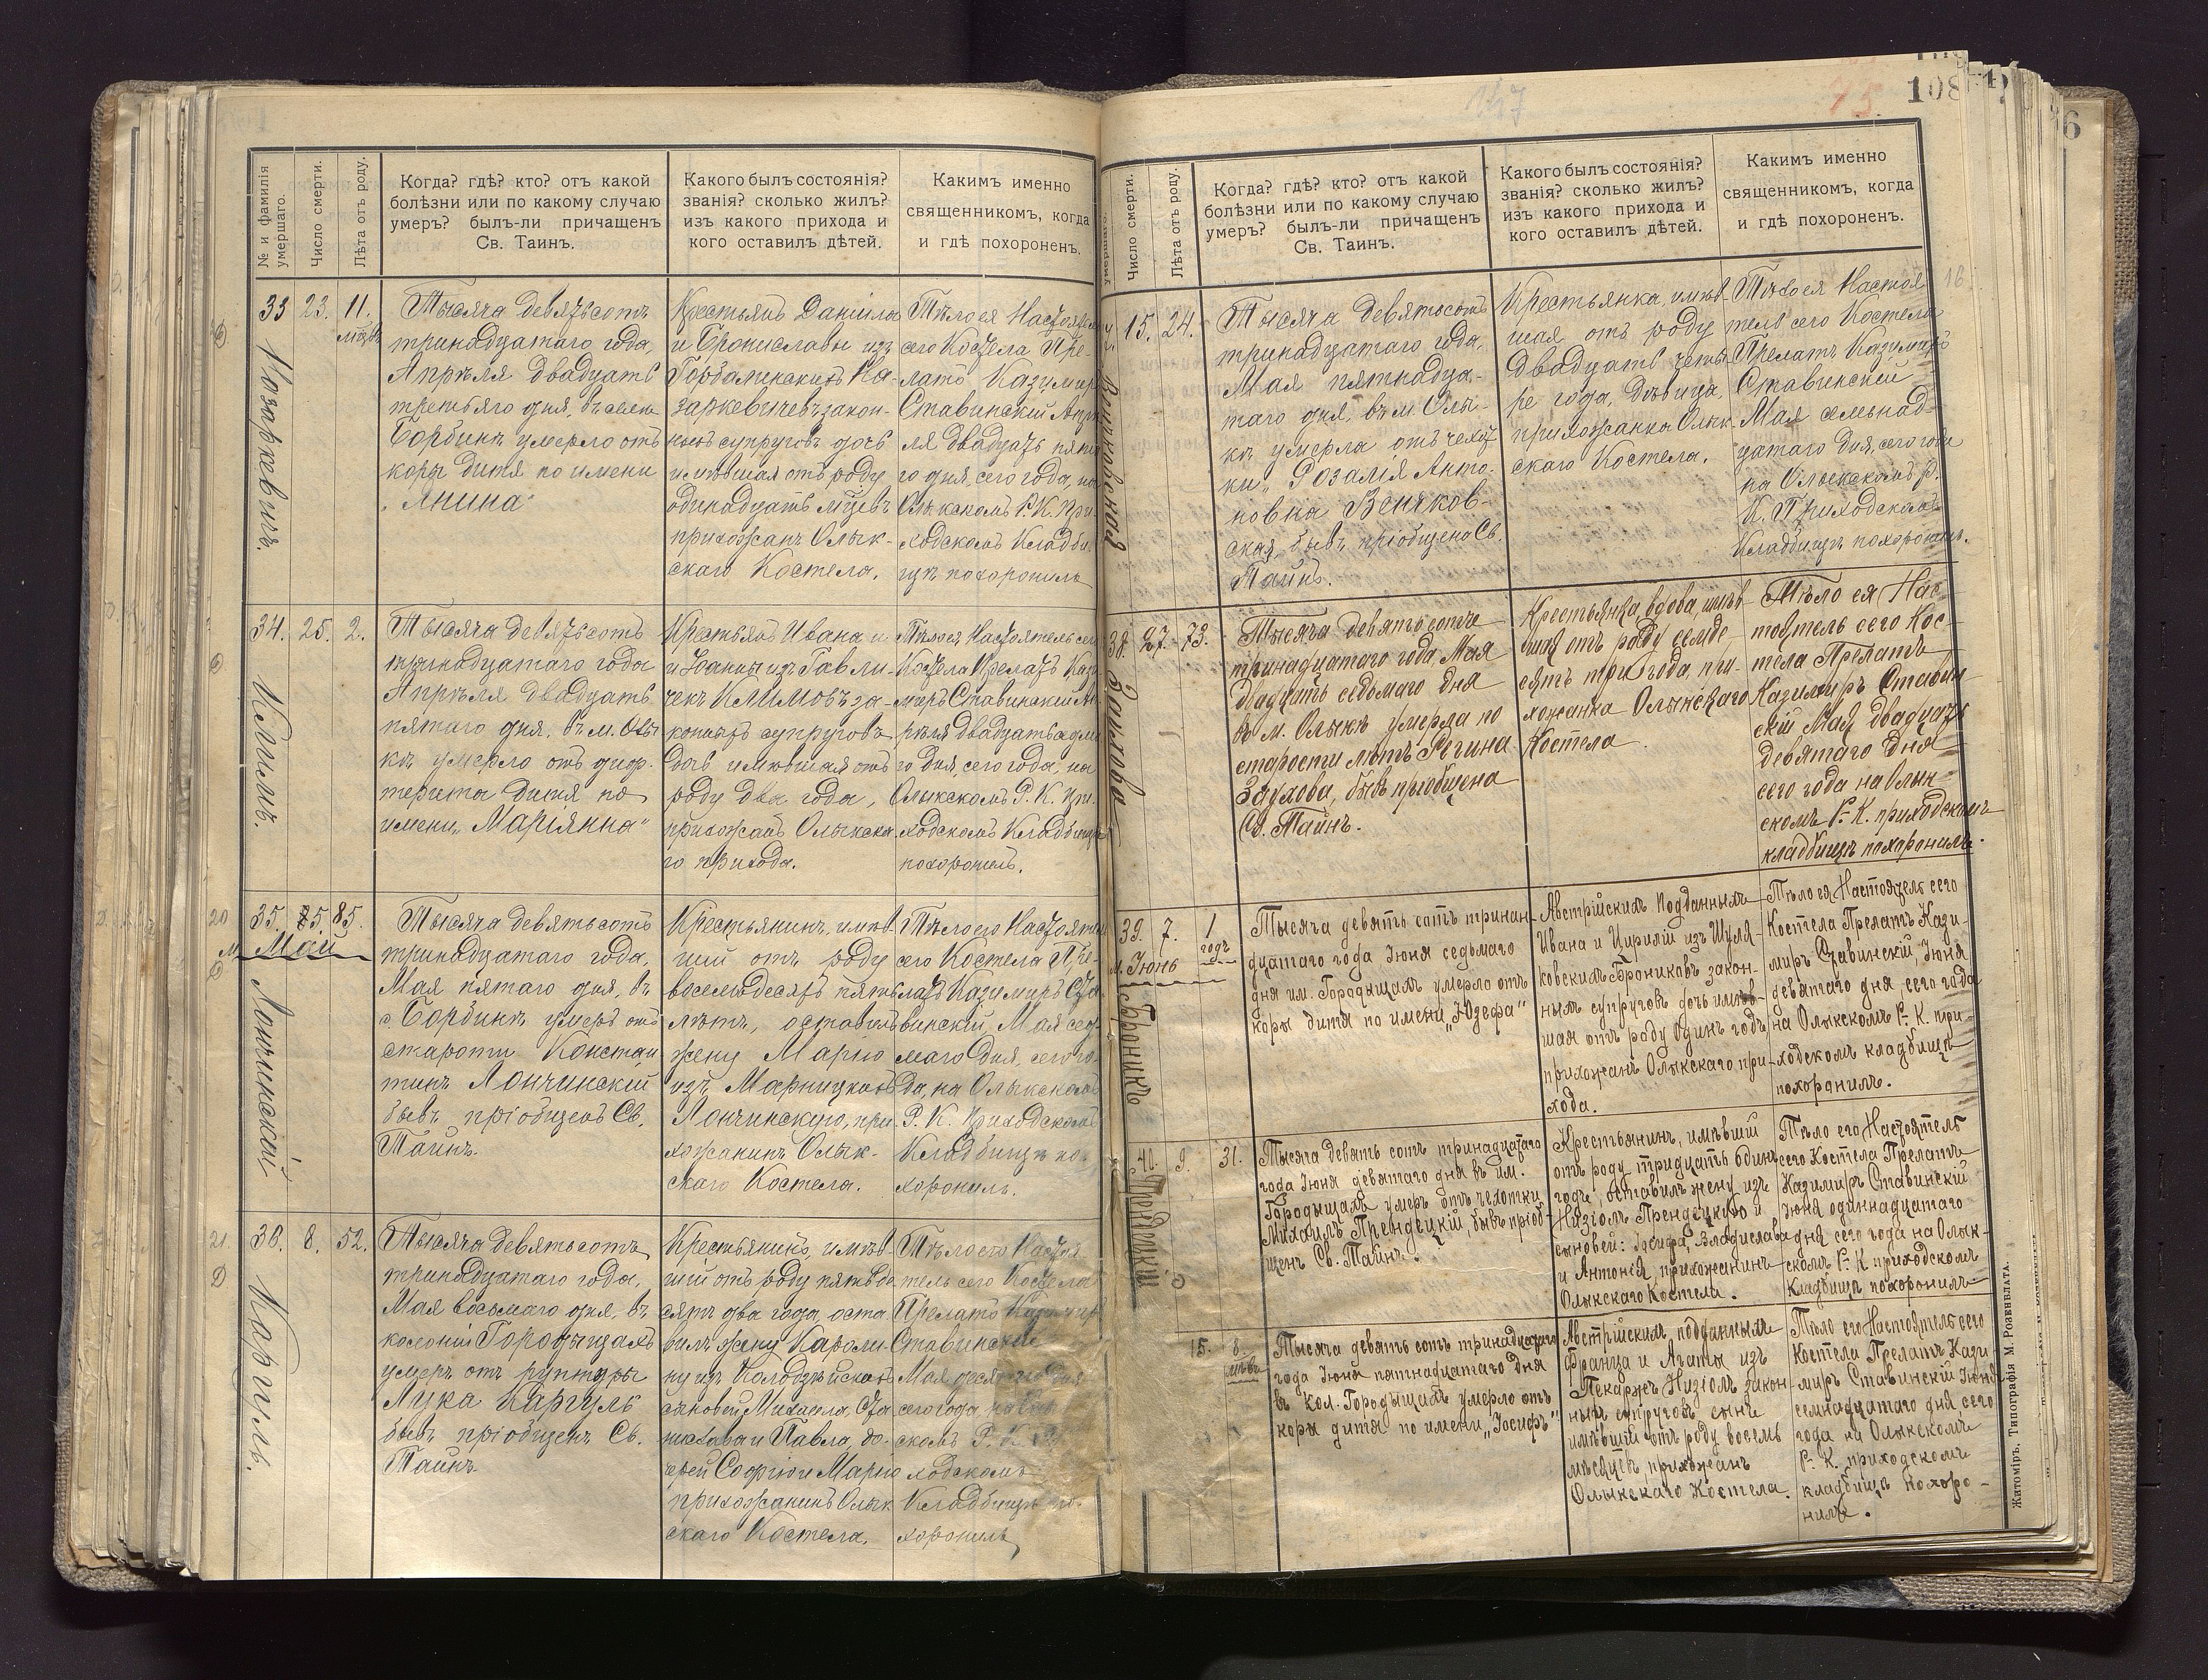 147
75
108
№ и фамилія умершаго.
Число смерти.
Лѣта отъ роду.
Когда? гдѣ? кто? отъ какой
болѣзни или по какому случаю
умеръ? былъ-ли причащенъ
Св. Таинъ.
Какого былъ состоянія?
званія? сколько жилъ?
изъ какого прихода и
кого оставилъ дѣтей.
Какимъ именно
священникомъ, когда
и гдѣ похороненъ.
33
Назаркевичъ.
23.
11.
мцевъ
Тысяча девятьсотъ
тринадцатаго года,
Апрѣля двадцать
третьяго дня, въ селѣ
Борбинѣ умерло отъ
коры дитя по имени
„Янина"
Крестьянъ Даніила
и Брониславы изъ
Горбалинскихъ На-
заркевичевъ закон-
ныхъ супруговъ дочь
имѣвшая отъ роду
одинадцать мцевъ
прихожанъ Олык-
скаго Костела.
Тѣло ея Настоятель
сего Костела Пре-
латъ Казимиръ
Ставинскій Апрѣ-
ля двадцать пята-
го дня, сего года, на
Олыкскомъ Р. К. При-
ходскомъ Кладби-
щѣ похоронилъ
34.
Климъ.
25.
2.
Тысяча девятьсотъ
тринадцатаго года
Апрѣля двадцать
пятаго дня, въ м. Олы-
кѣ умерло отъ диф-
терита дитя по
имени „Маріянна"
Крестьянъ Ивана и
и Іоанны изъ Гавли-
чекъ Климовъ за-
конныхъ супруговъ
дочь имѣвшая отъ
роду два года,
прихожанъ Олыкска-
го прихода.
Тѣло ея Настоятель сего
Костела Прелатъ Кази-
миръ Ставинскій Ап-
рѣля двадцать седьма-
го дня, сего года, на
Олыкскомъ Р. К. При-
ходскомъ Кладбищѣ
похоронилъ.
20
35.
М. Май
Лончинскій
5.
85.
Тысяча девятьсотъ
тринадцатаго года,
Мая пятаго дня, въ
с. Борбинѣ умеръ отъ
старости Констан-
тинъ Лончинскій
бывъ пріобщенъ Св.
Тайнъ.
Крестьянинъ, имѣв-
шій отъ роду
восемьдесятъ пять
лѣтъ, оставилъ
жену Марію
изъ Марницкихъ
Лончинскую, при-
хожанинъ Олык-
скаго Костела.
Тѣло его Настоятель
сего Костела Пре-
латъ Казимиръ Ста-
винскій, Мая седь-
маго дня, сего го-
да, на Олыкскомъ
Р. К. Приходскомъ
Кладбищѣ по-
хоронилъ.
21
36.
Каргуль.
8.
52.
Тысяча девятьсотъ
тринадцатаго года,
Мая восьмаго дня, въ
колоніи Городищахъ
умеръ отъ руптуры
Лука Каргуль
бывъ пріобщенъ Св.
Тайнъ
Крестьянинъ, имѣв-
шій отъ роду пятьде-
сятъ два года, оста-
вилъ жену Кароли-
ну изъ Колодзѣйскихъ
сыновей Михаила, Ста-
нислава и Павла, до-
черей Софію и Марію
прихожанинъ Олык-
скаго Костела.
Тѣло его Настоя-
тель сего Костела
Прелатъ Казимиръ
Ставинскій
Мая десятаго дня
сего года на Олык-
скомъ Р. К. При-
ходскомъ
Кладбищѣ по-
хоронилъ
умершаго.
Число смерти.
Лѣта отъ роду.
Когда? гдѣ? кто? отъ какой
болѣзни или по какому случаю
умеръ? былъ-ли причащенъ
Св. Таинъ.
Какого былъ состоянія?
званія? сколько жилъ?
изъ какого прихода и
кого оставилъ дѣтей.
Какимъ именно
священникомъ, когда
и гдѣ похороненъ.
16
15.
24.
Тысяча девятьсотъ
тринадцатаго года,
Мая пятнадца-
таго дня, въ м. Олы-
кѣ умерла отъ чехот-
ки „Розалія Анто-
новна Венжков-
ская, бывъ пріобщена Св.
Тайнъ.
Крестьянка, имѣв-
шая отъ роду
двадцать четы-
ре года, дѣвица,
прихожанка Олык-
скаго Костела.
Тѣло ея Настоя-
тель сего Костела
Прелатъ Казимиръ
Ставинскій
Мая семьнад-
цатаго дня, сего года
на Олыкскомъ Р.
К. Приходскомъ
Кладбищѣ похоронилъ.
38.
Заухова
27.
73.
Тысяча девятьсотъ
тринадцатаго года, Мая
двадцать седьмаго дня
въ м. Олыкѣ умерла по
старости лѣтъ Регина
Заухова, бывъ пріобщена
Св. Тайнъ.
Крестьянка, вдова, имѣв-
шая отъ роду семьде-
сятъ три года, при-
хожанка Олыкскаго
Костела.
Тѣло ея Нас-
тоятель сего Кос-
тела Прелатъ
Казимиръ Ставин-
скій Мая двадцать
девятаго дня
сего года на Олык-
скомъ Р. К. приходскомъ
кладбищѣ похоронилъ.
39.
м. Іюнь
Броникъ
7.
1
годъ
Тысяча девять сотъ тринад-
цатаго года Іюня седьмаго
дня им. Городыщахъ умерло отъ
коры дитя по имени „Юзефа"
Австрійскихъ подданныхъ
Ивана и Цириліи изъ Шуля-
ковскихъ Брониковъ закон-
ныхъ супруговъ дочь имѣв-
шая отъ роду одинъ годъ
прихожанъ Олыкскаго при-
хода.
Тѣло ея Настоятель сего
Костела Прелатъ Кази-
миръ Ставинскій, Іюня
девятаго дня, сего года
на Олыкскомъ Р. К. при-
ходскомъ кладбищѣ
похоронилъ.
40.
Прендецкій
9.
31.
Тысяча девять сотъ тринадцатаго
года Іюня девятаго дня въ им.
Городыщахъ умеръ отъ чехотки
Михаилъ Прендецкій, бывъ пріоб-
щенъ Св. Тайнъ.
Крестьянинъ, имѣвшій
отъ роду тридцать одинъ
годъ, оставилъ жену изъ
Низіолъ Прендецкую и
сыновей: Іосифа, Владислава
и Антонія, прихожанинъ
Олыкскаго Костела.
Тѣло его Настоятель
сего Костела Прелатъ
Казимиръ Ставинскій
Іюня одиннадцатаго
дня сего года на Олык-
скомъ Р. К. приходскомъ
Кладбищѣ похоронилъ
15.
8.
мцевъ
Тысяча девять сотъ тринадцатаго
года Іюня пятнадцатаго дня
въ кол. Городыщахъ умерло отъ
коры дитя по имени „Іосифъ"
Австрійскихъ подданныхъ
Франца и Агаты изъ
Пекаржъ Низіолъ закон-
ныхъ супруговъ сынъ
имѣвшій отъ роду восемь
мѣсяцевъ прихожанъ
Олыкскаго Костела.
Тѣло его Настоятель сего
Костела Прелатъ Кази-
миръ Ставинскій Іюня
семнадцатаго дня сего
года на Олыкскомъ
Р. К. приходскомъ
кладбищѣ похоро-
нилъ.
Житоміръ, Типографія М. Розенблата.
6